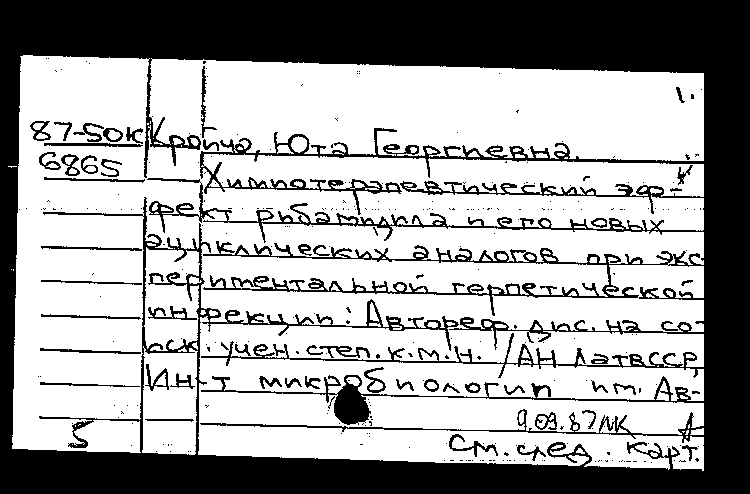 1.
87-50к Кройча, Юта Георгиевна.
6865 Химиотерапевтический эф-
фект рибамидила и его новых
ациклических аналогов при экс-
периментальной герпетической
инфекции: Автореф. дис. на со-
иск. учен. степ. к.м.н. / АН ЛатвССР,
Ин-т микробиологии им. Ав-
9.09.87 ЛК
5 См. след. карт.